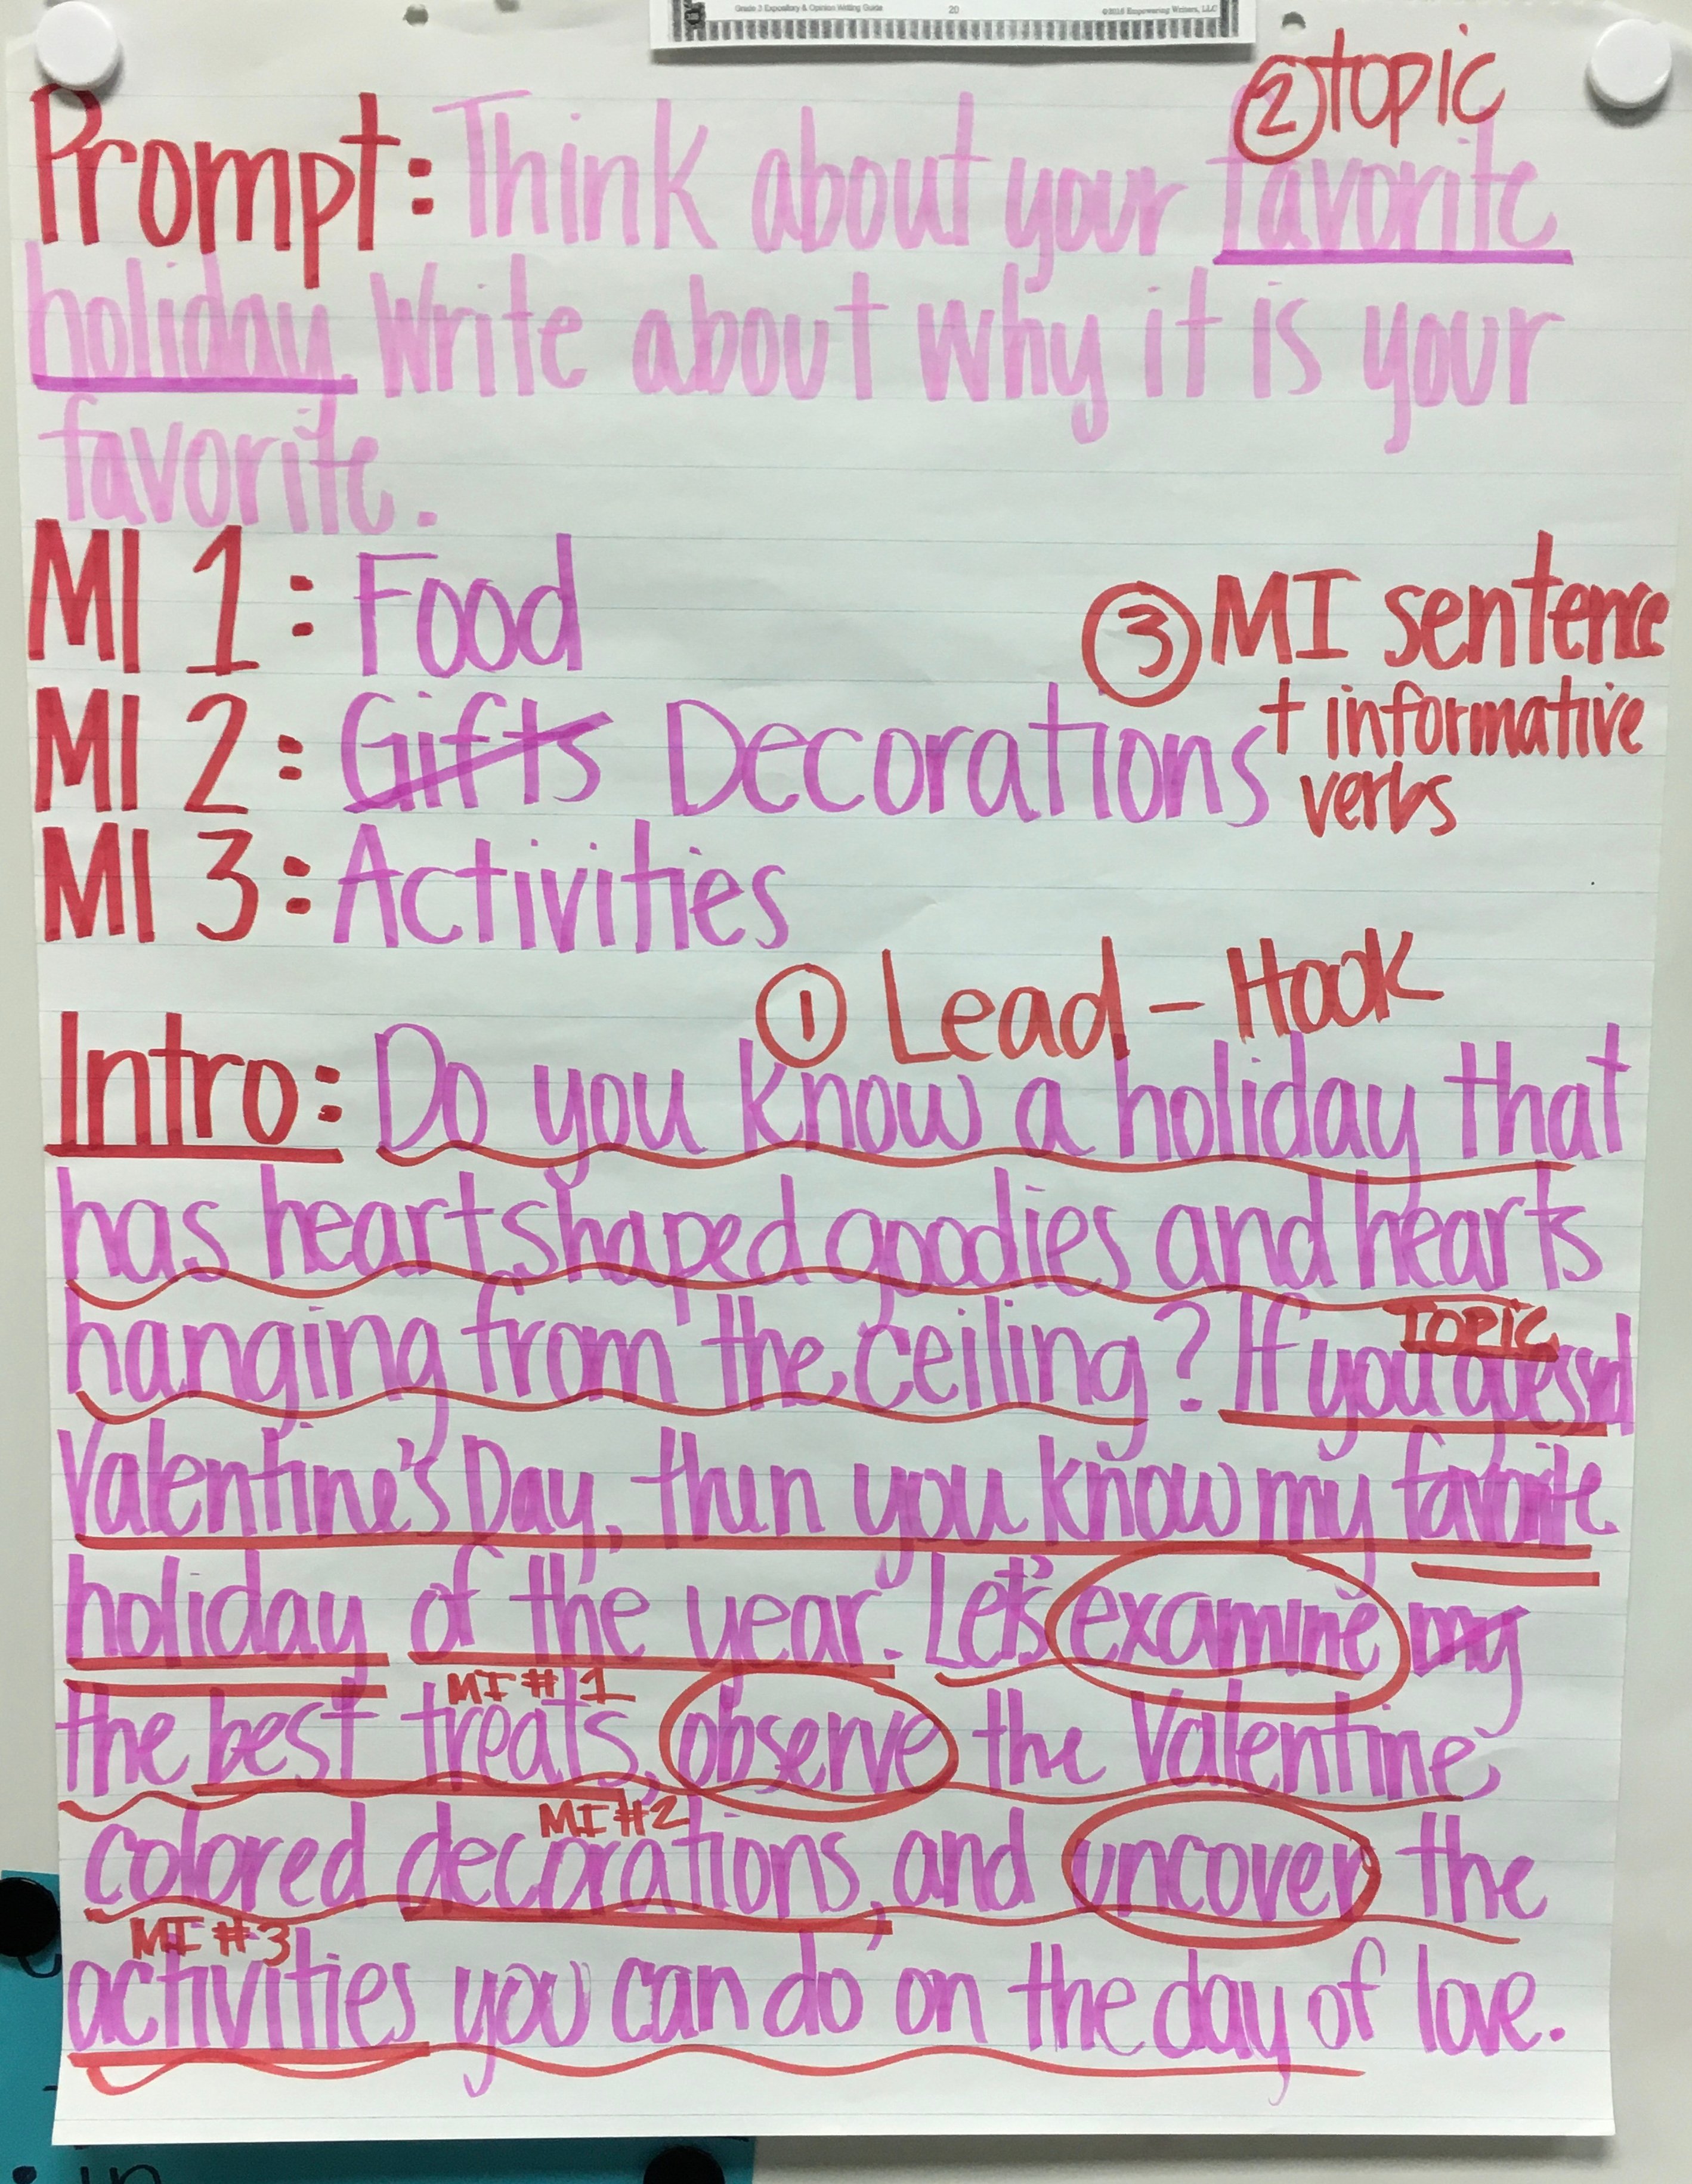 Grade 3 Expository & Opinion Writing Guide 20 ©2016 Empowering Writers, LLC
② topic
Prompt: Think about your favorite
holiday. Write about why it is your
favorite.
MI 1: Food
③ MI sentence
+ informative
verbs
MI 2: Gifts Decorations
MI 3: Activities
① Lead - Hook
Intro: Do you know a holiday that
has heart shaped goodies and hearts
hanging from the ceiling? If you guessed
TOPIC
Valentine's Day, then you know my favorite
holiday of the year. Let's examine my
MI #1
the best treats, observe the Valentine
MI #2
colored decorations, and uncover the
MI #3
activities you can do on the day of love.